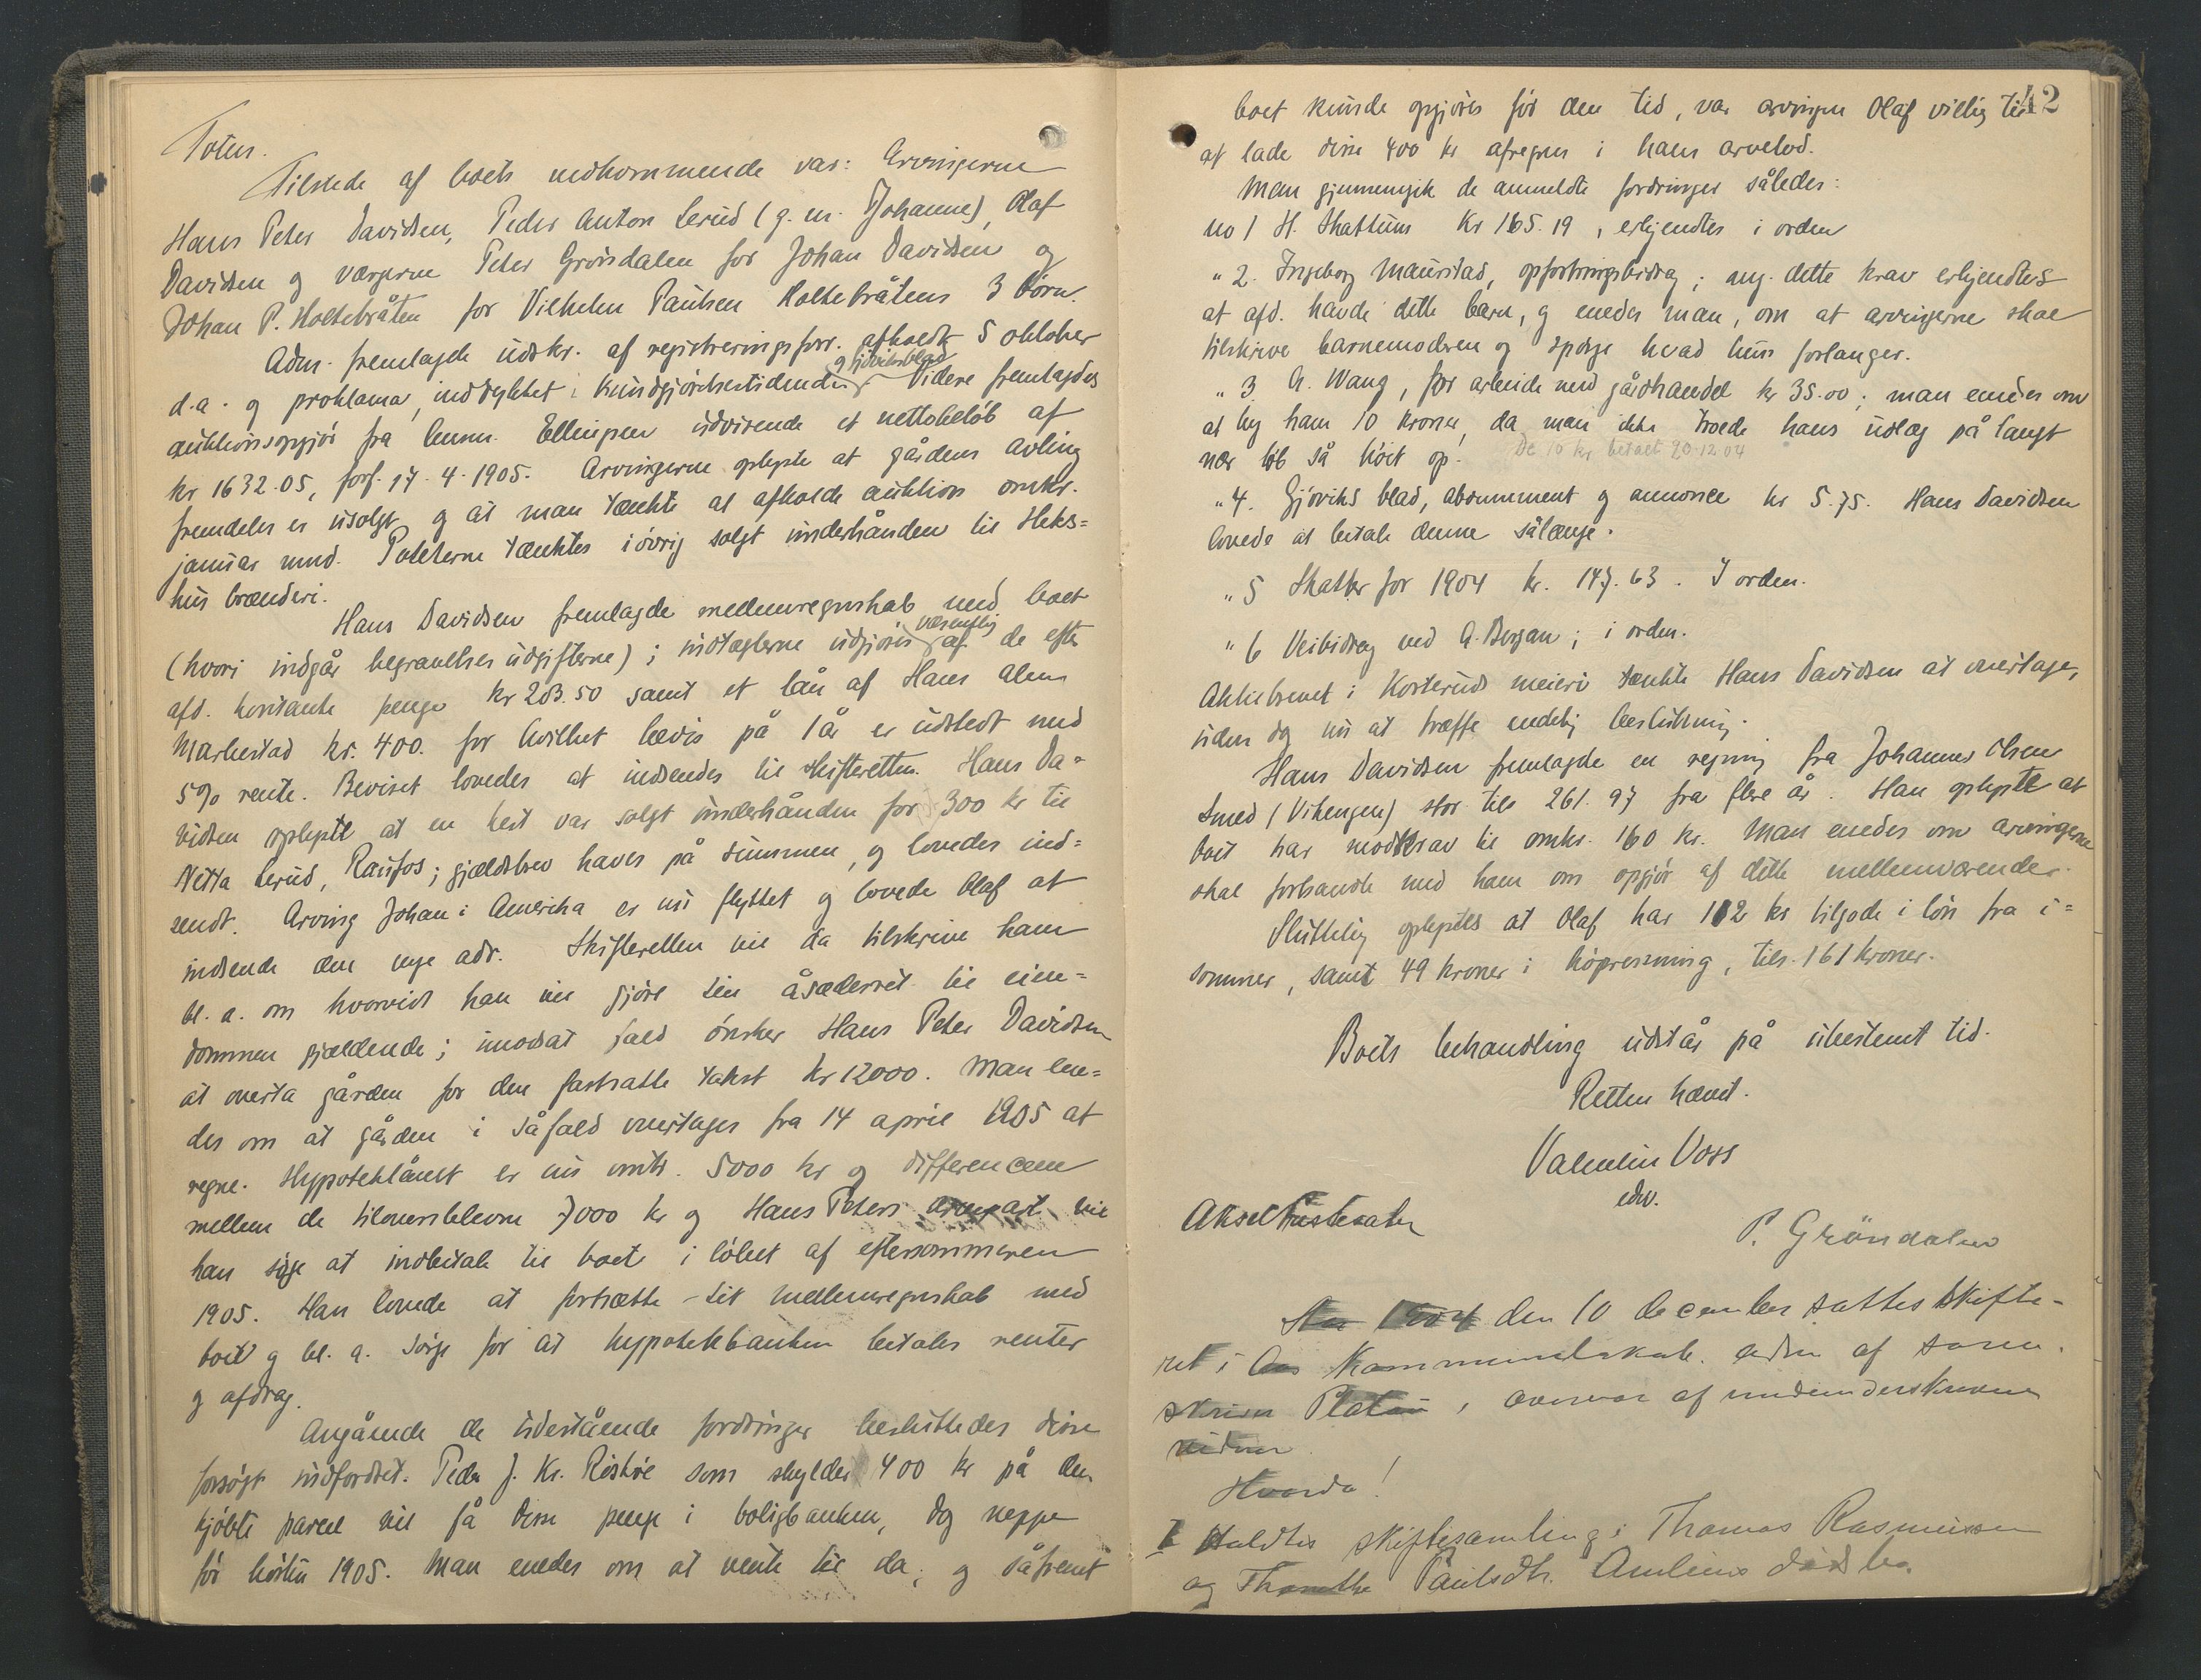 Toten.
Tilstede af boets vedkommende var: Arvingerne
Hans Peter Davidsen, Peder Anton Lerud (g. m. Johanne), Olaf
Davidsen og værgerne Peter Gröndalen for Johan Davidsen og
Johan P. Holtebråten for Vilhelm Paulsen Holtebråtens 3 börn.
Adm. fremlagde udskr. af registreringsforr. afholdt 5 oktober
d.a. og proklama, inddrykket i Kundgjörelsestidende og Gjöviksblad. Videre fremlagdes
auktionsopgjör fra lensm. Ellingsen udvisende et nettobelöb af
kr 1632.05, forf. 17-4-1905. Arvingerne oplyste at gårdens avling
fremdeles er usolgt og at man tænkte at afholde auktion omkr.
januar mnd. Poteterne tænktes iövrig solgt underhånden til Heks=
hus brænderi.
Hans Davidsen fremlagde mellemregnskab med boet
(hvori indgår begravelses udgifterne); indtægterne udgjöres væsentlig af de efter
afd. kontante penge kr 203.50 samt et lån af Hans Alm
Marlestad kr. 400. for hvilket bevis på 1 år er udstedt med
5% rente. Beviset lovedes at indsendes til skifteretten. Hans Da=
vidsen oplyste at en hest var solgt underhånden for 300 kr til
Lerud, Raufos; gjældsbrev haves på summen, og lovedes ind=
sendt. Arving Johan i Amerika er nu flyttet og lovede Olaf at
indsende den nye adr. Skifteretten vil da tilskrive ham
bl. a. om hvorvidt han vil gjöre sin åsædesret til eien=
dommen gjældende; i modsat fald önsker Hans Peter Davidsen
at overta gården for den fastsatte takst kr 12000. Man ene=
des om at gården i såfald overtages fra 14 april 1905 at
regne. Hypoteklånet er nu omtr. 5000 kr og differencen
mellem de tiloversblevne 7000 kr og Hans Peters arvepart vil
han söge at indbetale til boet i löbet af eftersommeren
1905. Han lovede at fortsætte sit mellemregnskab med
boet og bl. a. sörge for at hypotekbanken betales renter
og afdrag.
Angående de udestående fordringer besluttedes disse
forsögt indfordret. Peder J. Kr. som skylder 400 kr på den
kjöbte parcel vil få disse penge i boligbanken, dog neppe
för hösten 1905. Man enedes om at vente til da; og såfremt
42
boet kunde opgjöres för den tid, var arvingen Olaf villig til
at lade disse 400 kr afregnes i hans arvelod.
Man gjennemgik de anmeldte fordringer således:
no 1 H. Skattum kr 165.19, erkjendtes i orden
" 2. Ingeborg Maurstad, opfostringsbidrag; ang. dette krav erkjendtes
at afd. havde dette barn, og enedes man om at arvingerne skal
tilskrive barnemoderen og spörge hvad hun forlanger.
" 3 A. Wang, for arbeide med gårdhandel kr 35.00; man enedes om
at by ham 10 kroner, da man ikke troede hans udlæg på langt
nær löb så höit op. De 10 kr betalt 20.12.04
" 4. Gjöviks blad, abonnement og annonce kr 5.75. Hans Davidsen
lovede at betale denne sålænge.
" 5 Skatter for 1904 kr. 147.63. I orden.
" 6 Veibidrag ved A. Bergan; i orden.
Aktiebrevet i Korterud meieri tænkte Hans Davidsen at overtage,
uden dog nu at træffe endelig beslutning.
Hans Davidsen fremlagde en regning fra Johannes Olsen
Smed (Vikengen) stor tils 261.97 fra flere år. Han oplyste at
boet har modkrav til omkr. 160 kr. Man enedes om arvingerne
skal forhandle med ham om opgjör af dette mellemværende.
Sluttelig oplystes at Olaf har 112 kr tilgode i lön fra i=
sommer, samt 49 kroner i höpresning, tils. 161 kroner.
Boets behandling udstår på ubestemt tid.
Retten hævet.
Valentin Voss
edv.
Aksel
P. Gröndalen
Aar 1904 den 10 december sattes skifte-
ret i Aas Kommunelokale. adm af soren-
skriver Platou, overvær af underskrevne
vidner.
Hvorda!
I Holdtes skiftesamling i Thomas Rasmussen
og Paulsdtr. Amliens dödsbo.